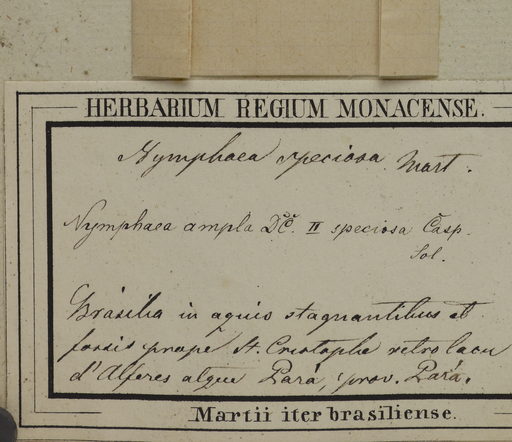 HERBARIUM REGIUM MONACENSE.
Nymphaea speciosa Mart.
Nymphaea ampla DC. II speciosa Casp.
Sol.
Brasilia in aquis stagnantibus et
fossis prope St. Cristophe retro lacu
d'Alferes atque Pará, prov. Pará.
Martii iter brasiliense.